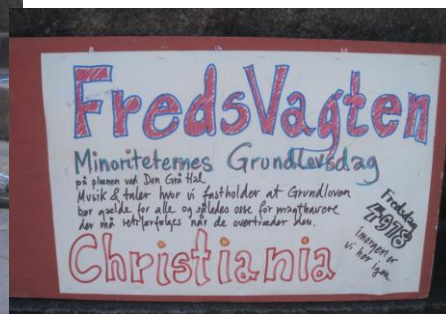 FredsVagten
Minoriteternes Grundlovsdag
på plænen ved Den Grå Hal
Musik & taler hvor vi fastholder at Grundloven
bør gælde for alle og således osse for magthavere
der må retsforfølges når de overtræder den.
Christiania
Fredsdag
4978
imorgen er
vi her igen